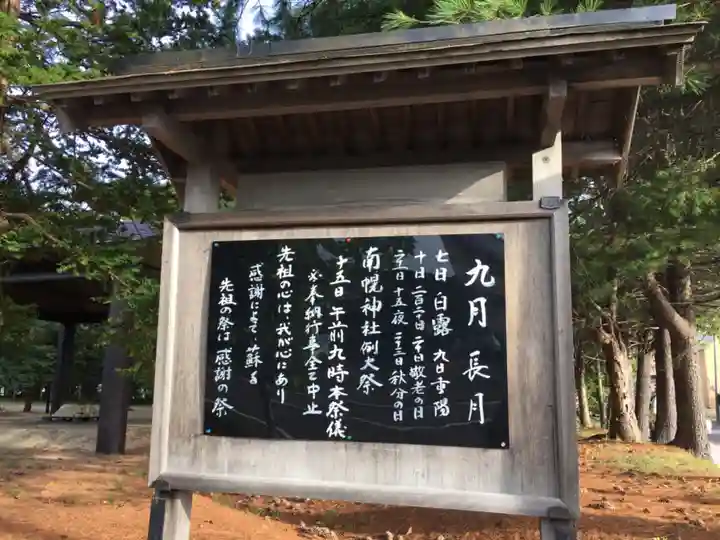 九月 長月
七日 白露 九日重陽
十日 二百二十日 二十日敬老の日
二十一日 十五夜 二十三日 秋分の日
南幌神社例大祭
十五日 午前九時本祭儀
※奉納行事全て中止
先祖の心は、我が心にあり
感謝によって、蘇る
先祖の祭は 感謝の祭